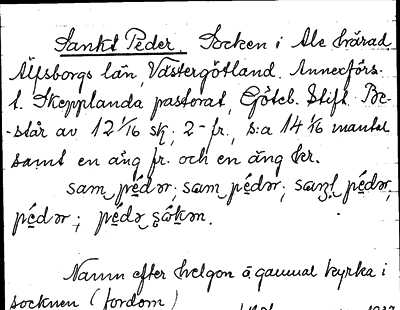 Sankt Peder. Socken i Ale härad
Älfsborgs län, Västergötland. Annexförs.
t. Skepplanda pastorat, Göteb. Stift. Be-
-står av 12 1/16 sk, 2- fr., s:a 14 1/16 mantal
samt en äng fr. och en äng kr.
sam pédər; sam pédər; pédər,
pédər; pédə
Namn efter helgon å gammal kyrka i
socknen (fordom)